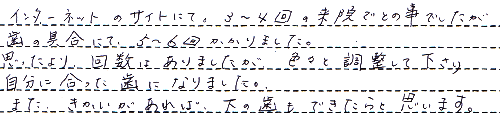 インターネットのサイトにて、3〜4回の来院でとの事でしたが
歯の具合にて、5〜6回かかりました。
思ったより、回数はありましたが、色々と調整して下さり
自分に合った歯になりました。
また、きかいがあれば、下の歯もできたらと思います。